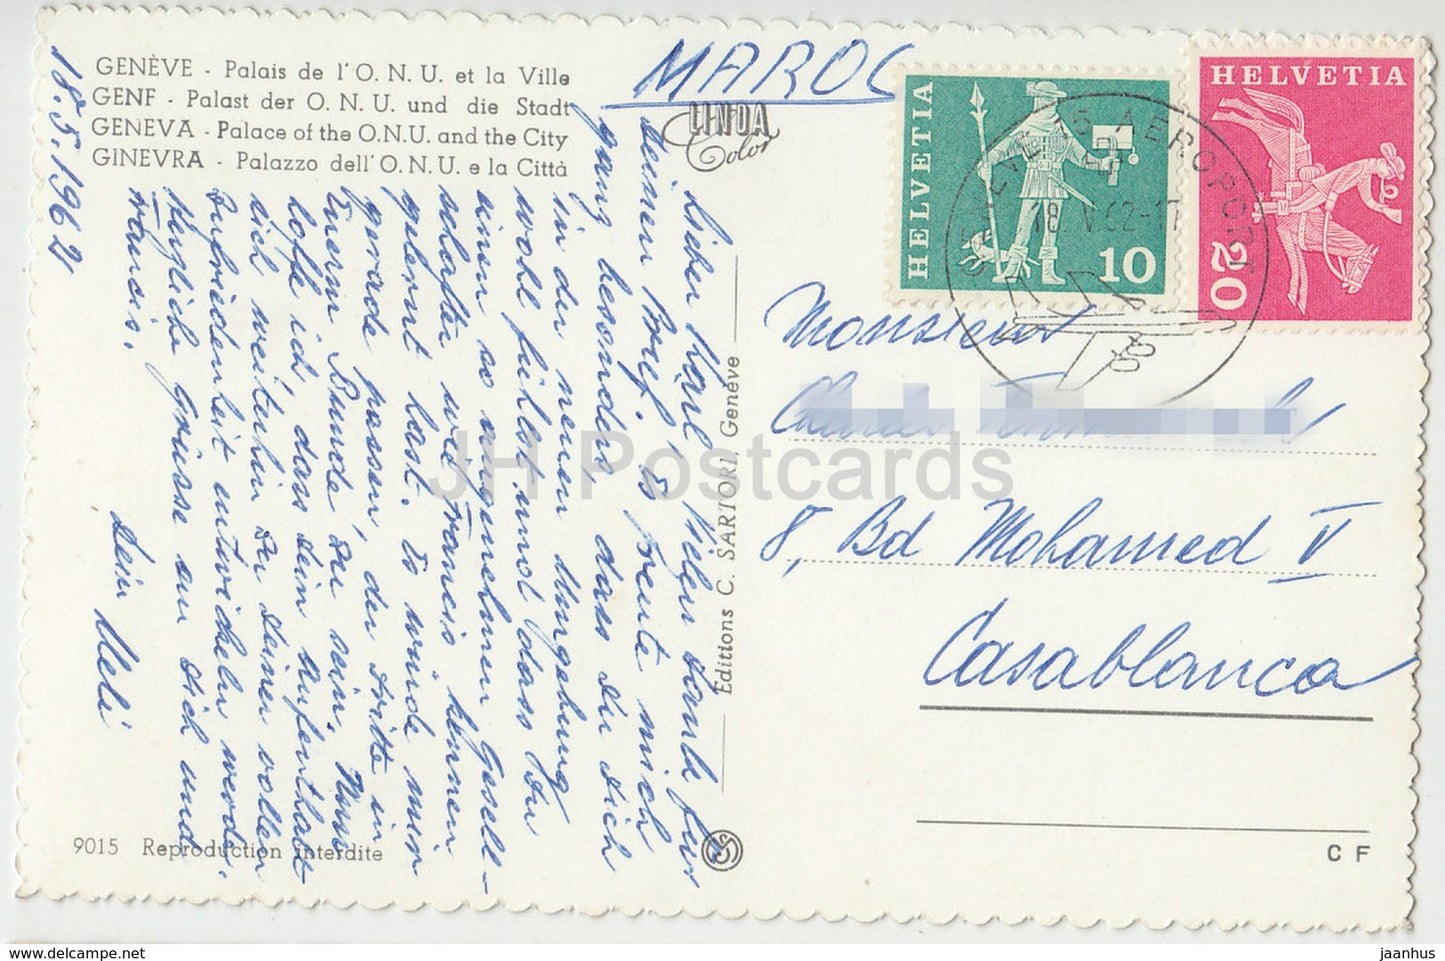 GENÈVE - Palais de l'O. N. U. et la Ville
GENF - Palast der O. N. U. und die Stadt
GENEVA - Palace of the O.N.U. and the City
GINEVRA - Palazzo dell'O. N. U. e la Città
18.5.1962
Lieber Karl Vielen Dank für
deinen Brief. Es freute mich
ganz besonders, dass du dich
in der neuen Umgebung
wohl fühlst und dass Du
einen so angenehmen Gesell-
schafter wie Francis kennen
gelernt hast. Es würde mir
gerade passen, der dritte in
Eueren Bunde zu sein. Nun
hoffe ich, dass dein Aufenthalt
sich weiterhin zu deiner vollen
Zufriedenheit entwickeln werde.
Herzliche Grüsse an dich und
Francis.
Dein Ueli
9015 Reproduction interdite
Editions C. SARTORI, Genève
LINDA
Color
MAROC
HELVETIA
10
HELVETIA
20
AEROPORT
18. V. 62-17
Monsieur
8, Bd Mohamed V
Casablanca
C F
JH Postcards
jaanhus